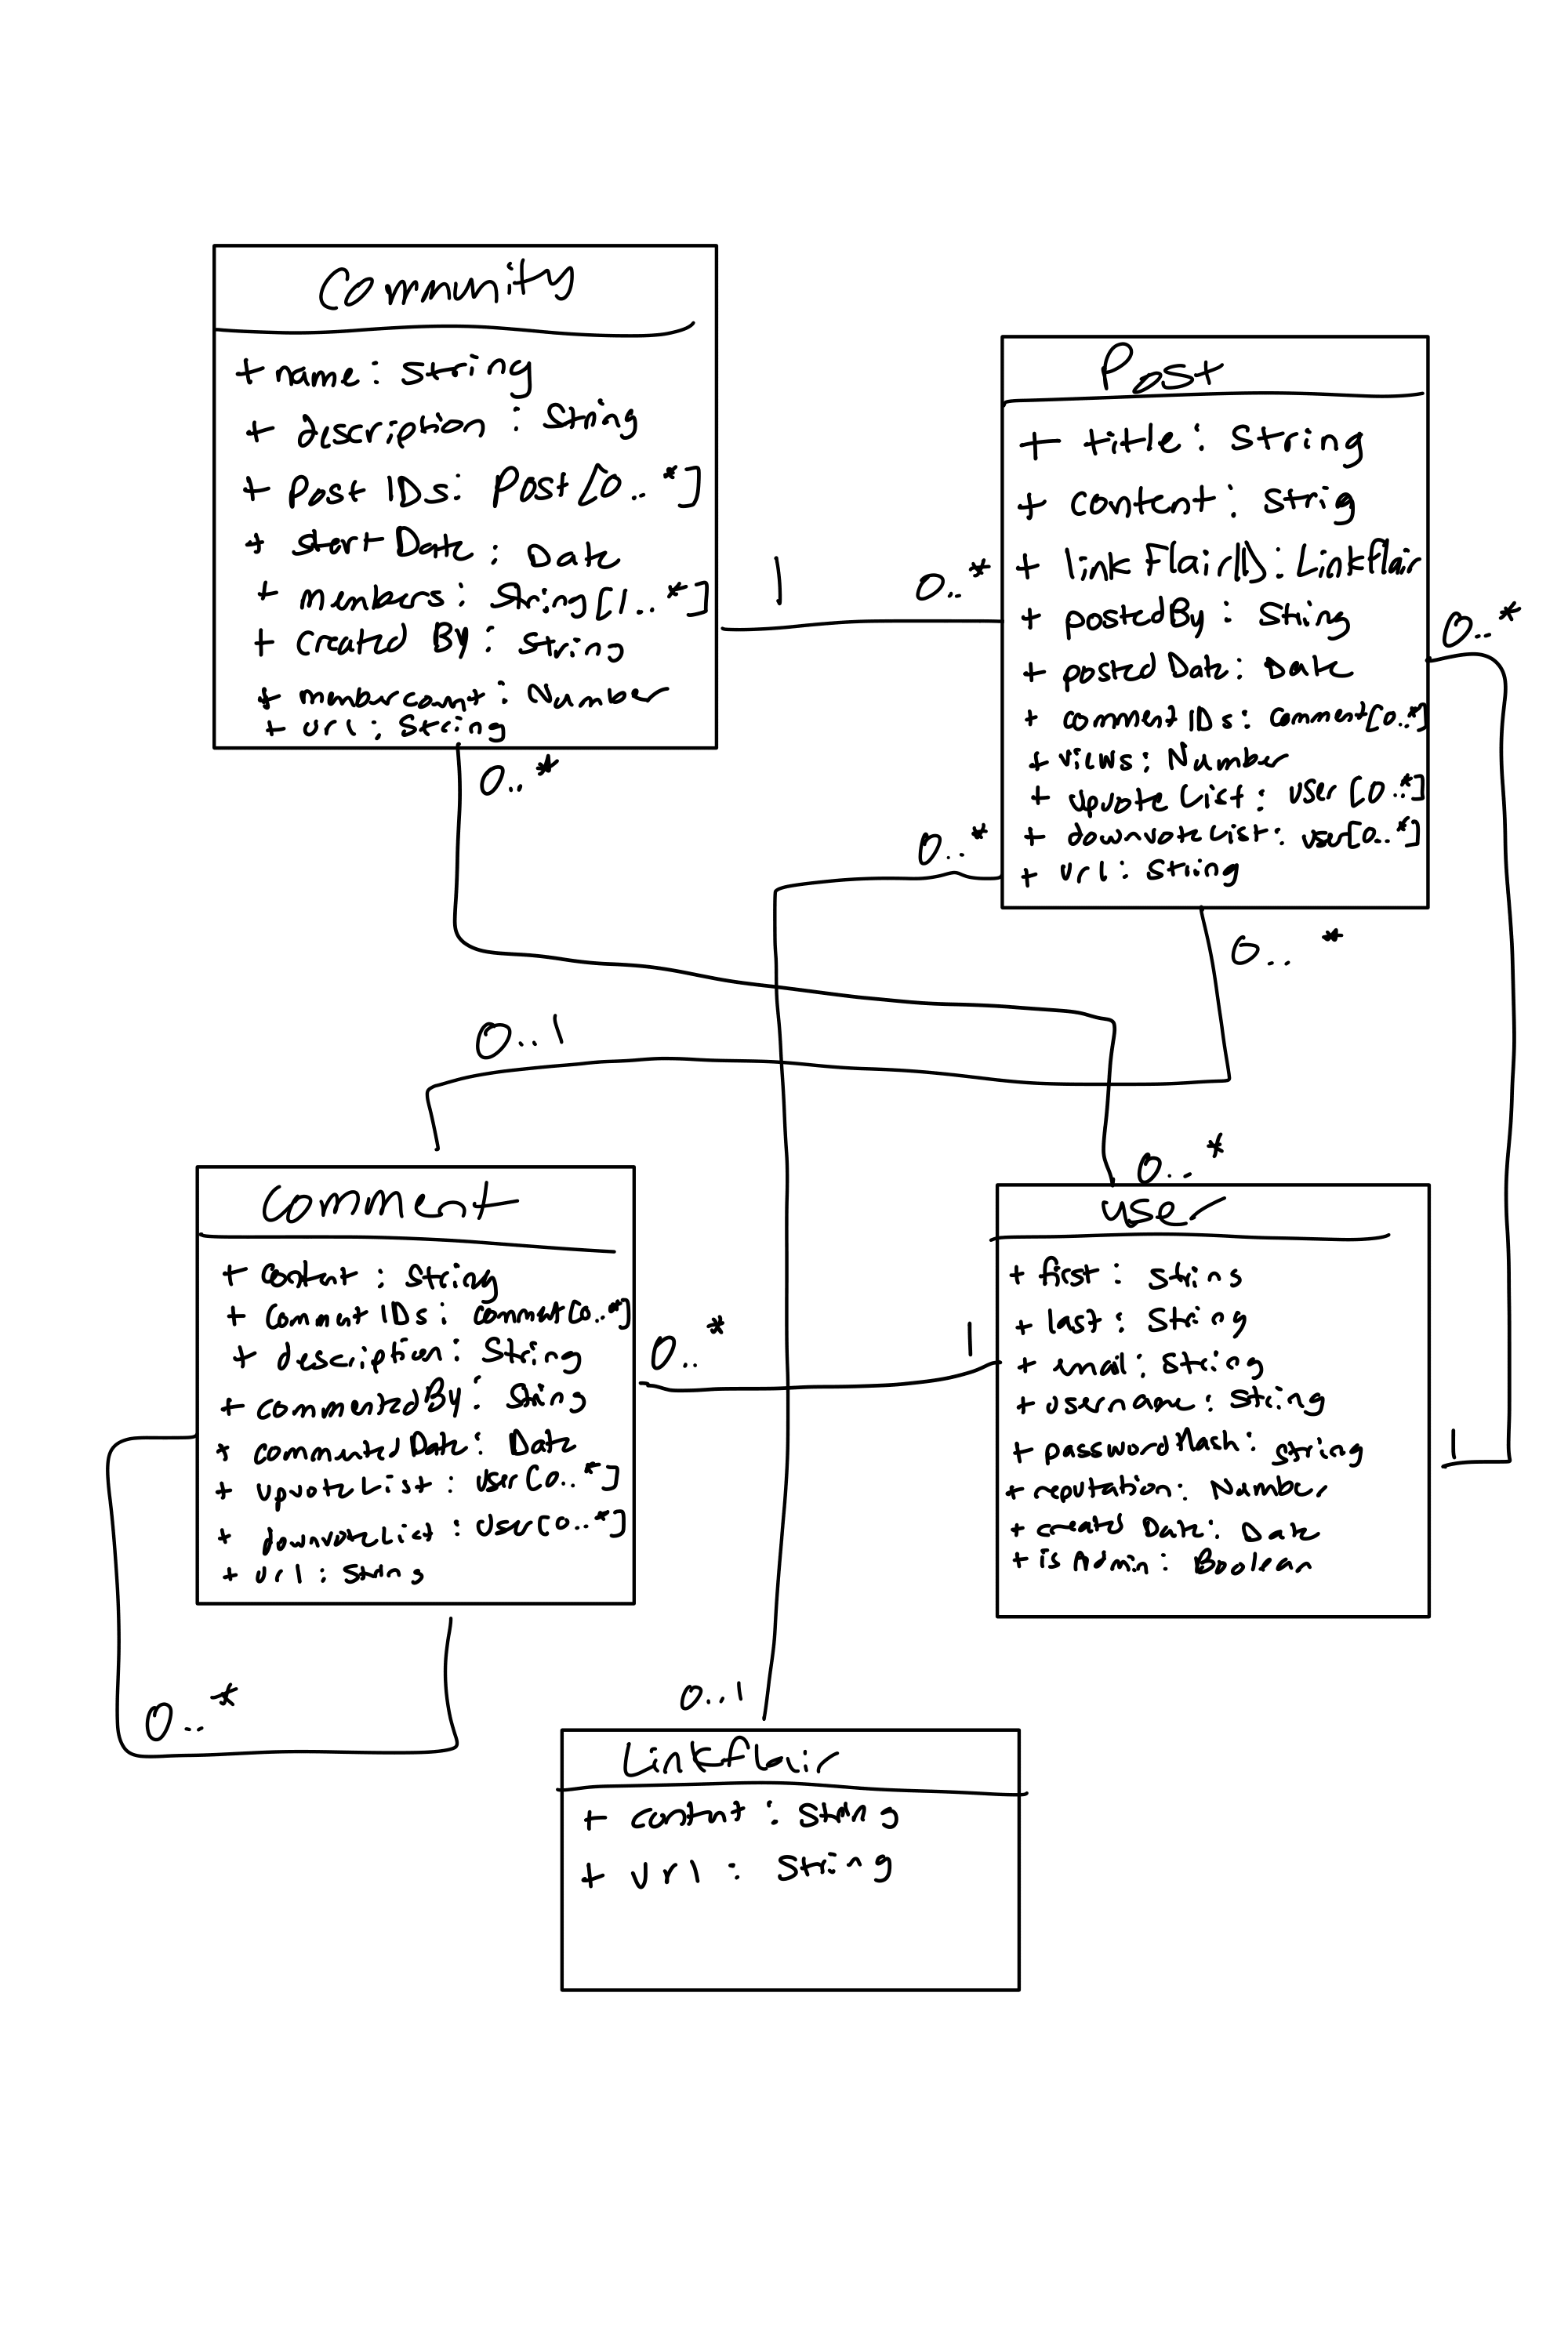 Community
+ name: string
+ description : String
+ Post IDs: Post[0..*]
+ start Date : Date
+ members: String[1..*]
+ Created By: string
+ membercount: Number
+ url: String
1
0..*
0..*
Post
+ title: String
+ content: String
+ link FlairID: Linkflair
+ postedBy: String
+ posted Date: Date
+ comment IDs: comment[0..*]
+ views: Number
+ upvote List: user [0..*]
+ downvote List: user[0..*]
+ url: String
0..*
0..*
0..*
0..1
Comment
+ Content: String
+ Comment IDs: comment[0..*]
+ description: String
+ commentedBy: String
+ commented Date: Date
+ upvote List: user [0..*]
+ downvoteList: user[0..*]
+ url: String
0..*
0..*
1
0..*
user
+ first: string
+ last: String
+ email: string
+ username: String
+ passwordHash: string
+ reputation: Number
+ created Date: Date
+ is Admin: Boolean
1
0..1
Linkflair
+ content: string
+ url: string